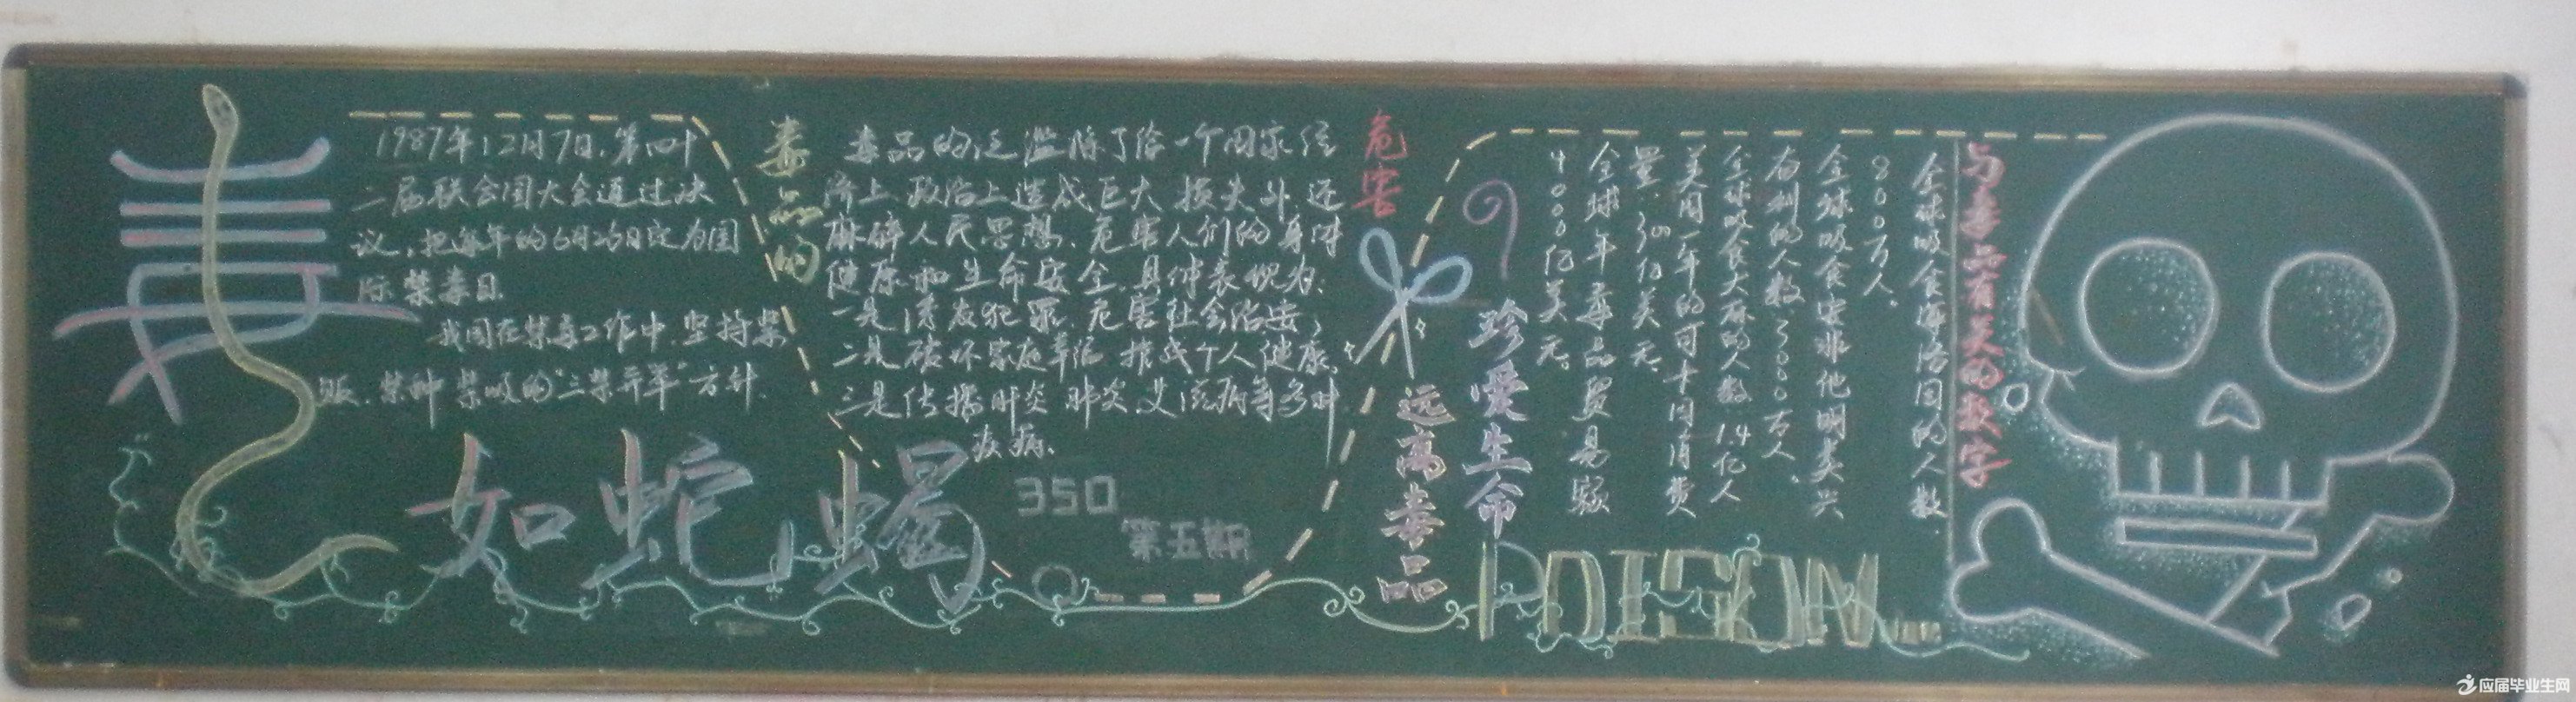 毒
如蛇蝎
1987年12月7日,第四十
二届联合国大会通过决
议,把每年的6月26日定为国
际禁毒日.
我国在禁毒工作中,坚持禁
贩、禁种 禁吸的“三禁并举”方针.
毒品的
危害
毒品的泛滥除了给一个国家经
济上 政治上造成巨大 损失外,还
麻醉人民思想、危害人们的身体
健康和生命安全.具体表现为:
一是 诱发犯罪.危害社会治安;
二是 破坏家庭幸福 摧残个人健康.
三是 传播肝炎 肺炎.艾滋病等多种
疾病.
350
第五期
珍爱生命
远离毒品
POISON
与毒品有关的数字
全球吸食海洛因的人数
800万人.
全球吸食安非他明类兴
奋剂的人数 3000万人.
全球吸食大麻的人数 1.4亿人
美国一年的可卡因消费
量:300亿美元.
全球年毒品贸易额
4000亿美元.
应届毕业生网